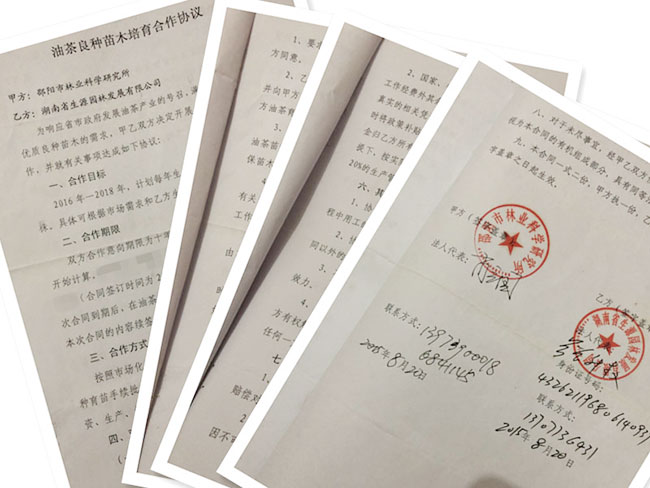 油茶良种苗木培育合作协议
甲方：邵阳市林业科学研究所
乙方：湖南省生源园林发展有限公司
为响应省市政府发展油茶产业的号召，满
优质良种苗木的需求，甲乙双方决定开展
作，并就有关事项达成如下协议：
一、合作目标
2016 年—2018 年，计划每年生
株。具体可根据市场需求和乙方生
二、合作期限
双方合作意向期限为十
开始计算。
（合同签订时间为 2
次合同到期后，在油茶
本次合同的内容续签
三、合作方式
按照市场化
种育苗手续批
资、生产、
四、
1、要求
方同意。
2、乙
并向甲方
方油茶育
3、
油茶苗
保苗木
4、
有关
工作
由
1、
赔偿对
2、
因不
2、国家、
工作经费外其
真实的相关凭
时将政策补贴
金归乙方所有
嫁下、按实
20%的生产
六、其
1、协
程中用工
2、协
同以外的
3、
效力。
4、
方有权
任何一
七
八、对于未尽事宜，经甲乙双方
视为本合同的有机组成部分，具有同等
九、本合同一式二份，甲方执一份，乙
字盖章之日起生效。
甲方（
邵阳市林业科学研究所
法人代表：
联系方式：13973900018
6841145
2015年8月20日
乙方（签字盖章
湖南省生源园林发展
法人代表
身份证号码：
联系方式：
13707736431
2015年8月20日